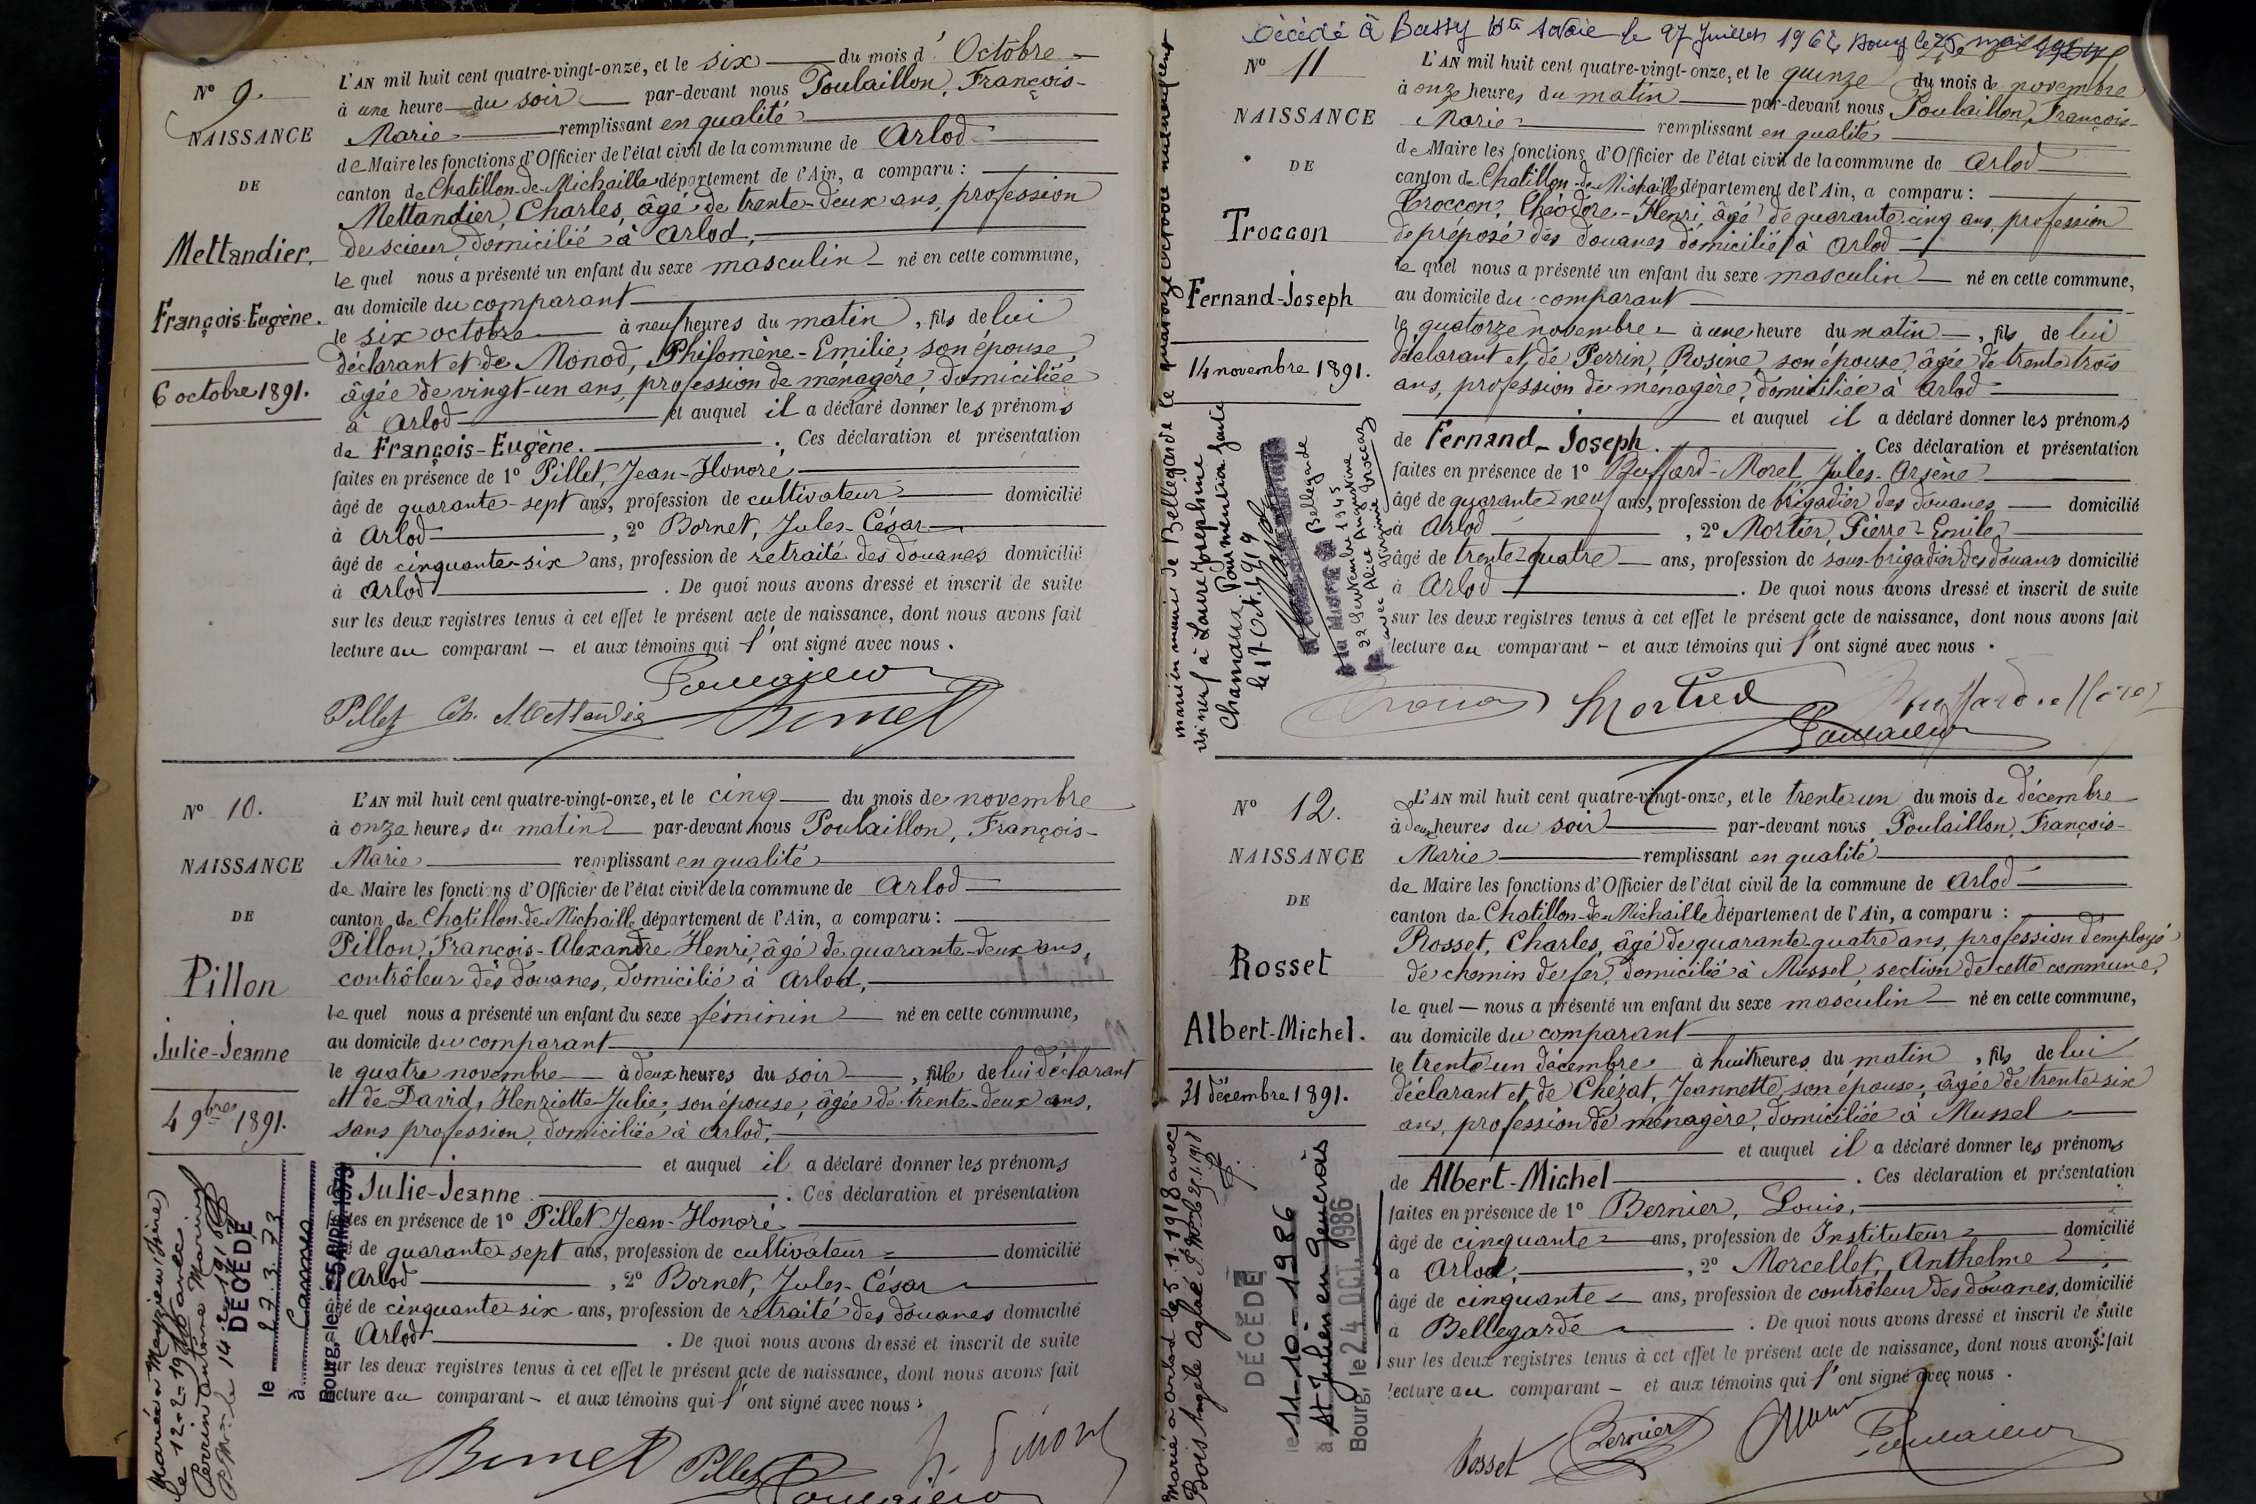 N° 9.
NAISSANCE
DE
Mettandier,
François-Eugène.
6 octobre 1891.
L'AN mil huit cent quatre-vingt-onze, et le six du mois d' Octobre
à une heure du soir par-devant nous Poulaillon, François-
Marie remplissant en qualité
de Maire les fonctions d'Officier de l'état civil de la commune de Arlod
canton de Chatillon-de-Michaille département de l'Ain, a comparu :
Mettandier, Charles, âgé de trente-deux ans, profession
de scieur, domicilié à Arlod,
le quel nous a présenté un enfant du sexe masculin né en cette commune,
au domicile du comparant
le six octobre à neuf heures du matin, fils de lui
déclarant et de Monod, Philomène-Emilie, son épouse,
âgée de vingt-un ans, profession de ménagère, domiciliée
à Arlod et auquel il a déclaré donner les prénoms
de François-Eugène. Ces déclaration et présentation
faites en présence de 1° Pillet, Jean-Honoré
âgé de quarante-sept ans, profession de cultivateur domicilié
à Arlod, 2° Bornet, Jules-César
âgé de cinquante-six ans, profession de retraité des douanes domicilié
à Arlod. De quoi nous avons dressé et inscrit de suite
sur les deux registres tenus à cet effet le présent acte de naissance, dont nous avons fait
lecture au comparant - et aux témoins qui l'ont signé avec nous.
Poulaillon
Pillet Ch. Mettandier Bornet
N° 10.
NAISSANCE
DE
Pillon
Julie-Jeanne
4 9bre 1891.
L'AN mil huit cent quatre-vingt-onze, et le cinq du mois de novembre
à onze heures du matin par-devant nous Poulaillon, François-
Marie remplissant en qualité
de Maire les fonctions d'Officier de l'état civil de la commune de Arlod
canton de Chatillon-de-Michaille département de l'Ain, a comparu :
Pillon, François-Alexandre-Henri, âgé de quarante-deux ans,
contrôleur des douanes, domicilié à Arlod,
le quel nous a présenté un enfant du sexe féminin né en cette commune,
au domicile du comparant
le quatre novembre à deux heures du soir, fille de lui déclarant
et de David, Henriette-Julie, son épouse, âgée de trente-deux ans,
sans profession, domiciliée à Arlod,
et auquel il a déclaré donner les prénoms
Julie-Jeanne. Ces déclaration et présentation
tes en présence de 1° Pillet, Jean-Honoré
é de quarante-sept ans, profession de cultivateur domicilié
Arlod, 2° Bornet, Jules-César
âgé de cinquante-six ans, profession de retraité des douanes domicilié
Arlod. De quoi nous avons dressé et inscrit de suite
sur les deux registres tenus à cet effet le présent acte de naissance, dont nous avons fait
lecture au comparant - et aux témoins qui l'ont signé avec nous.
Bornet Pillet h. Pillon
Poulaillon
le 12-2-1910 avec
Perrin Antoine
DÉCÉDÉ
le 27.3.73
à Cannes
Bourg, le
Décédé à Bassy Hte Savoie le 27 Juillet
N° 11
NAISSANCE
DE
Troccon
Fernand-Joseph
14 novembre 1891.
L'AN mil huit cent quatre-vingt-onze, et le quinze du mois de novembre
à onze heures du matin par-devant nous Poulaillon, François-
Marie remplissant en qualité
de Maire les fonctions d'Officier de l'état civil de la commune de Arlod
canton de Chatillon-de-Michaille département de l'Ain, a comparu :
Troccon, Théodore-Henri, âgé de quarante-cinq ans, profession
de préposé des douanes domicilié à Arlod
le quel nous a présenté un enfant du sexe masculin né en cette commune,
au domicile du comparant
le quatorze novembre à une heure du matin, fils de lui
déclarant et de Perrin, Rosine, son épouse, âgée de trente-trois
ans, profession de ménagère, domiciliée à Arlod
et auquel il a déclaré donner les prénoms
de Fernand-Joseph. Ces déclaration et présentation
faites en présence de 1° Buffard-Morel, Jules-Arsène
âgé de quarante-neuf ans, profession de brigadier des douanes domicilié
à Arlod, 2° Mortier, Pierre-Emile
âgé de trente-quatre ans, profession de sous-brigadier des douanes domicilié
à Arlod. De quoi nous avons dressé et inscrit de suite
sur les deux registres tenus à cet effet le présent acte de naissance, dont nous avons fait
lecture au comparant - et aux témoins qui l'ont signé avec nous.
Mortier Buffard-Morel
Poulaillon
mairie de Bellegarde le
neuf à Laure Josephine
Chanaux. Pour mention faite
le 17 Oct. 1919
Bellegarde
22 Septembre 1945
N° 12.
NAISSANCE
DE
Rosset
Albert-Michel.
31 décembre 1891.
L'AN mil huit cent quatre-vingt-onze, et le trente-un du mois de décembre
à deux heures du soir par-devant nous Poulaillon, François-
Marie remplissant en qualité
de Maire les fonctions d'Officier de l'état civil de la commune de Arlod
canton de Chatillon-de-Michaille département de l'Ain, a comparu :
Rosset, Charles, âgé de quarante-quatre ans, profession d'employé
de chemin de fer, domicilié à Mussel section de cette commune,
le quel - nous a présenté un enfant du sexe masculin né en cette commune,
au domicile du comparant
le trente-un décembre à huit heures du matin, fils de lui
déclarant et de Chézat, Jeannette, son épouse, âgée de trente-six
ans, profession de ménagère, domiciliée à Mussel
et auquel il a déclaré donner les prénoms
de Albert-Michel. Ces déclaration et présentation
faites en présence de 1° Bernier, Louis,
âgé de cinquante ans, profession de Instituteur domicilié
à Arlod, 2° Morcellet, Anthelme
âgé de cinquante ans, profession de contrôleur des douanes, domicilié
à Bellegarde. De quoi nous avons dressé et inscrit de suite
sur les deux registres tenus à cet effet le présent acte de naissance, dont nous avons fait
lecture au comparant - et aux témoins qui l'ont signé avec nous.
Rosset Bernier Poulaillon
Marié à Arlod le 5.1.1918 avec
Bois Angèle Aglaé
DÉCÉDÉ
le 11-10-1986
à St Julien en Genevois
Bourg, le 24 OCT. 1986